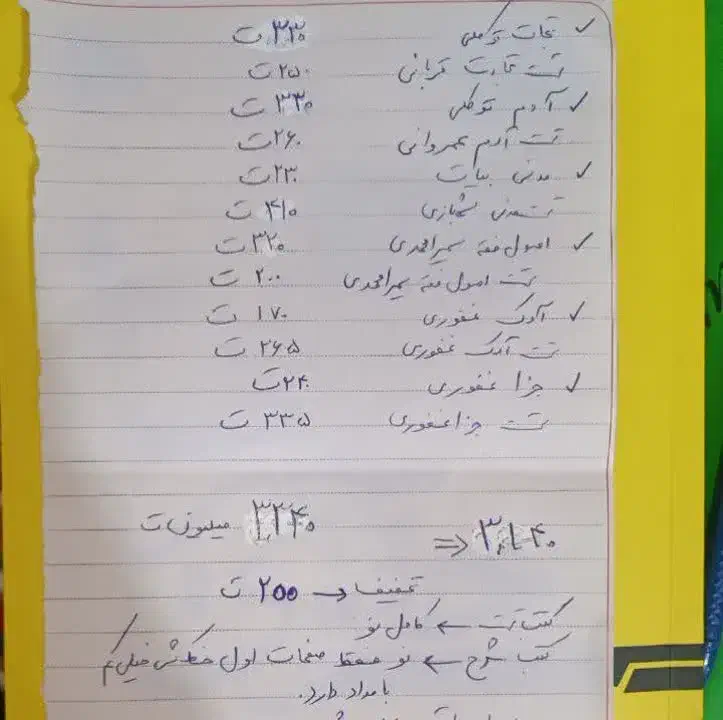 ✓ تجارت توکلی ۳۳۰ ت
تست تجارت قربانی ۲۵۰ ت
✓ آ.د.م توکلی ۳۳۰ ت
تست آ.د.م عمروانی ۲۶۰ ت
✓ مدنی بیات ۲۳۰ ت
تست مدنی شهبازی ۴۱۰ ت
✓ اصول فقه سمیرامحمدی ۳۲۰ ت
تست اصول فقه سمیرامحمدی ۲۰۰ ت
✓ آ.د.ک غفوری ۱۷۰ ت
تست آ.د.ک غفوری ۲۶۵ ت
✓ جزا غفوری ۲۴۰ ت
تست جزا غفوری ۳۳۵ ت
⇐ ۳,۲۴۰ میلیون ت
تخفیف → ۲۰۰ ت
کتب تست ← کاملا نو
کتب شرح ← نو فقط صفحات اول خط کشی خیلی کم
با مداد دارد.